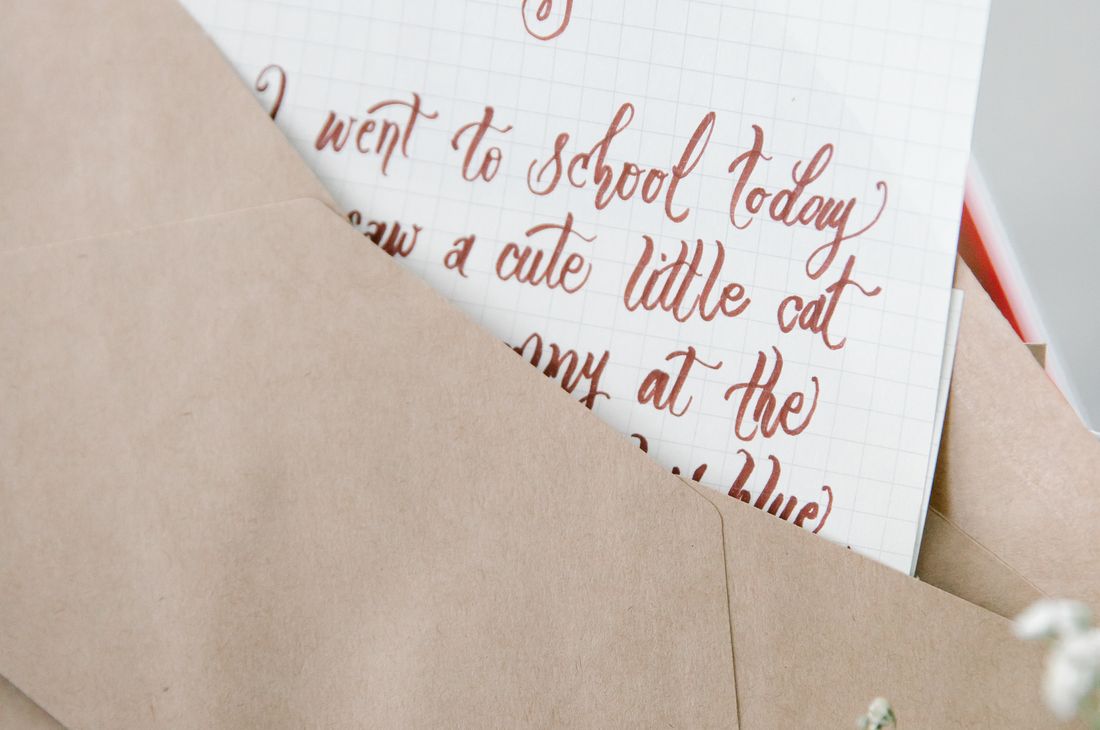 I went to school today
saw a cute little cat
at the
blue